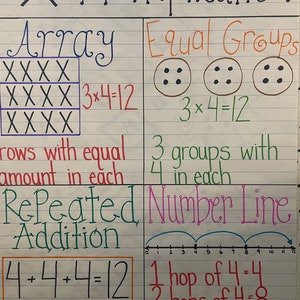 Array
X X X X
X X X X
X X X X
3x4=12
rows with equal
amount in each
Equal Groups
3x4=12
3 groups with
4 in each
Repeated
Addition
4+4+4=12
Number Line
1 hop of 4=4
2 hops of 4=8